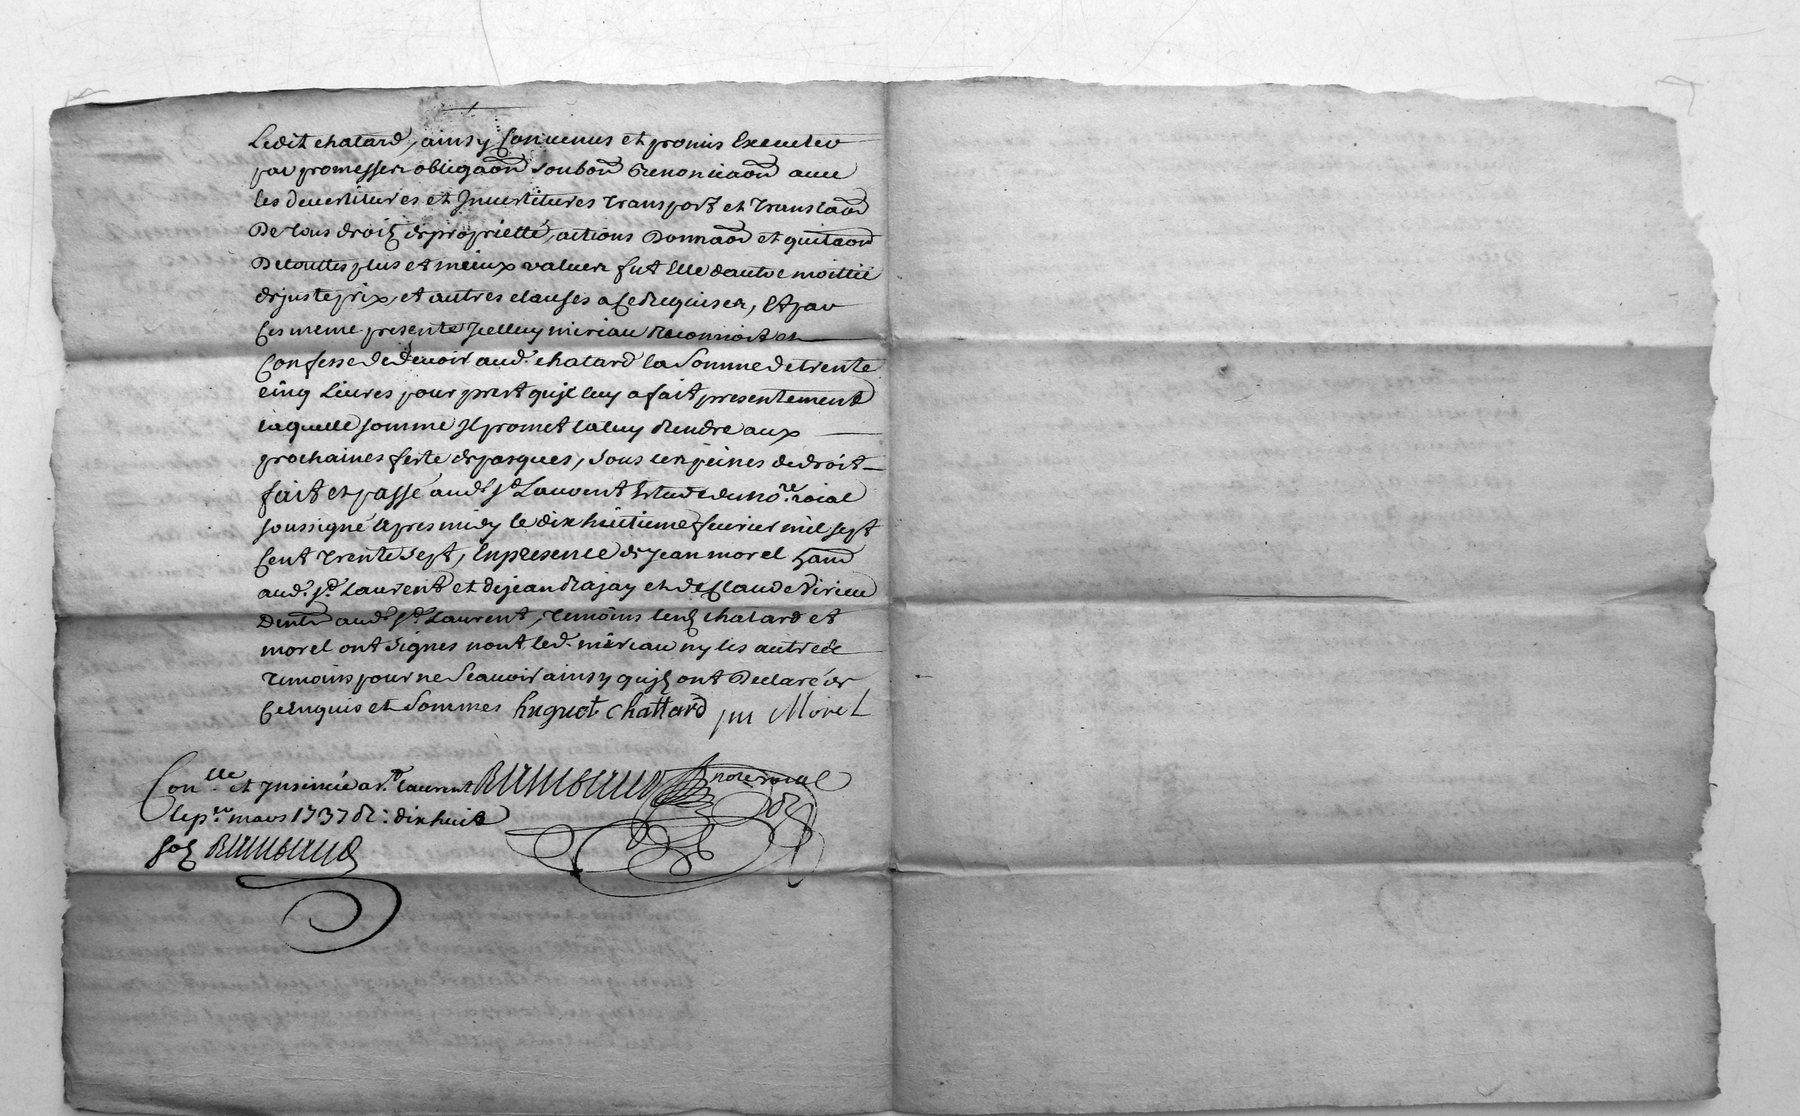 Ledit chatard, ainsy Convenus et promis Executer
par promesses obligaôn soubôn & renonciaôn avec
les devertitures et Invertitures transport et translaôn
De tous droitz de propriette, actions Donnaôn et quitaôn
De touttes plus et mieux values fut Elle d'autre moittié
de juste prix, et autres clauses a ce Requises, Et par
Ces meme presente Jcelluy miriau Reconnoit et
Confesse de devoir aud. chatard la Somme de trente
cinq Livres pour prest qu'jl luy a fait presentement
laquelle somme Jl promet la luy Rendre aux
prochaines feste de pasques, sous les peines de droit
fait et passé aud. St Laurent Estude du nore. roial
soussigné apres midy le dix huitieme fevrier mil sept
Cent trente sept, En presence de Jean morel
aud. St. Laurent et de jean Rajay et de Claude Virieu
aud. St. Laurent, temoins lesd. chatard et
morel ont signes nont led. miriau ny les autres
temoins pour ne Scavoir ainsy qu'jlz ont Declaré de
Ce Enquis et Sommes huguet chattard Morel
Conlle. et Jnsinué a St. laurent nore roial
le per. mars 1737 R: dix huit